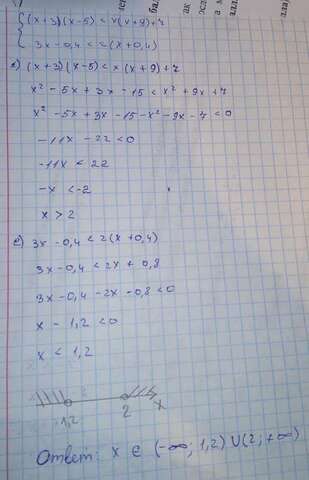 (x+3)(x-5) < x(x+9)+7
3x-0,4 < 2(x+0,4)
1) (x+3)(x-5) < x(x+9)+7
x² - 5x + 3x - 15 < x² + 9x + 7
x² - 5x + 3x - 15 - x² - 9x - 7 < 0
-11x - 22 < 0
-11x < 22
-x < -2
x > 2
2) 3x - 0,4 < 2(x+0,4)
3x - 0,4 < 2x + 0,8
3x - 0,4 - 2x - 0,8 < 0
x - 1,2 < 0
x < 1,2
1,2 2 x
Ответ: x ∈ (-∞; 1,2) U (2; +∞)